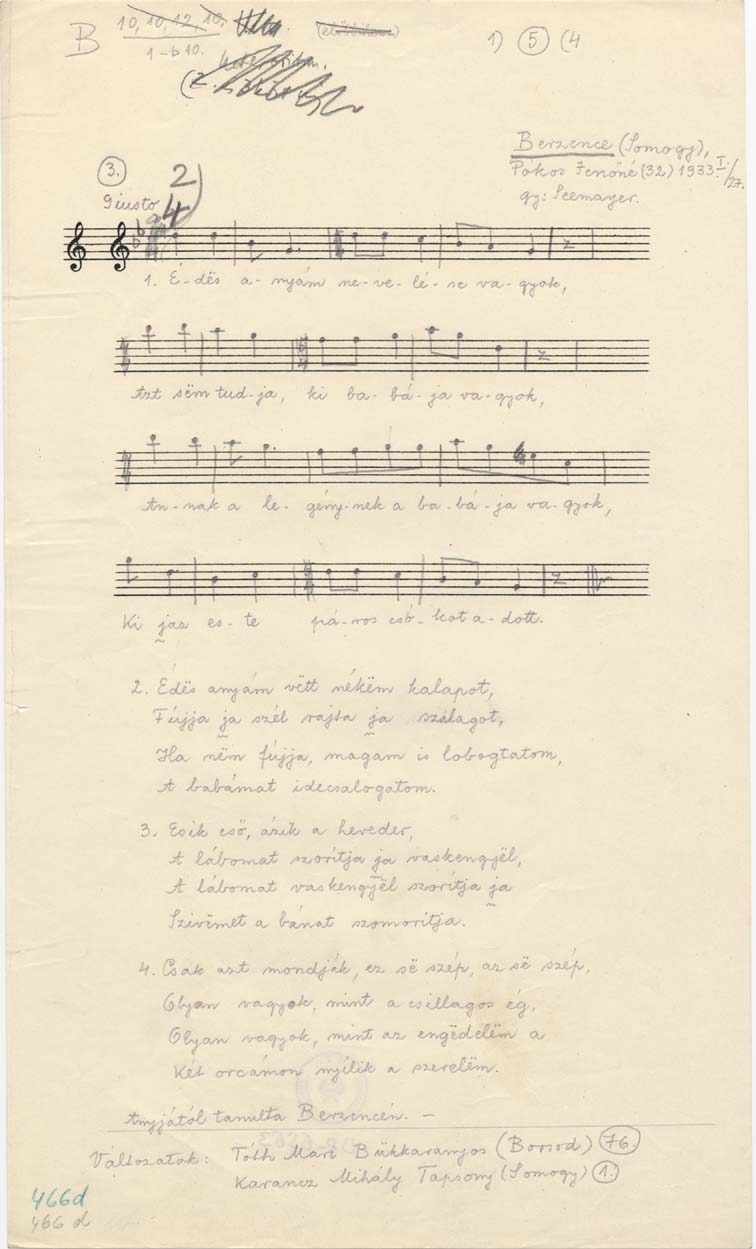 B 10, 10, 12, 10.
1-b 10.
1) 5 (4
Berzence (Somogy),
Pókos Jenőné (32) 1933 I./27.
gy: Seemayer.
3.
Giusto 2 4
1. É-dës a-nyám ne-ve-lé-se va-gyok,
Azt sëm tud-ja, ki ba-bá-ja va-gyok,
An-nak a le-gény-nek a ba-bá-ja va-gyok,
Ki jaz es-te pá-ros csó-kot a-dott.
2. Édës anyám vëtt nékëm kalapot,
Fújja ja szél rajta ja szalagot,
Ha nën fújja, magam is lobogtatom,
A babámat idecsalogatom.
3. Esik eső, ázik a heveder,
A lábomat szorítja ja vaskengyël,
A lábomat vaskengyël szorítja ja
Szivëmet a bánat szomorítja.
4. Csak azt mondják, ez së szép, az së szép,
Olyan vagyok, mint a csillagos ég,
Olyan vagyok, mint az engëdelëm a
Két orcámon nyílik a szerelëm.
Anyjától tanulta Berzencén. —
Változatok: Tóth Mari Bükkaranyos (Borsod) 76.
Karancz Mihály Tapsony (Somogy) 1.
466d
466 d